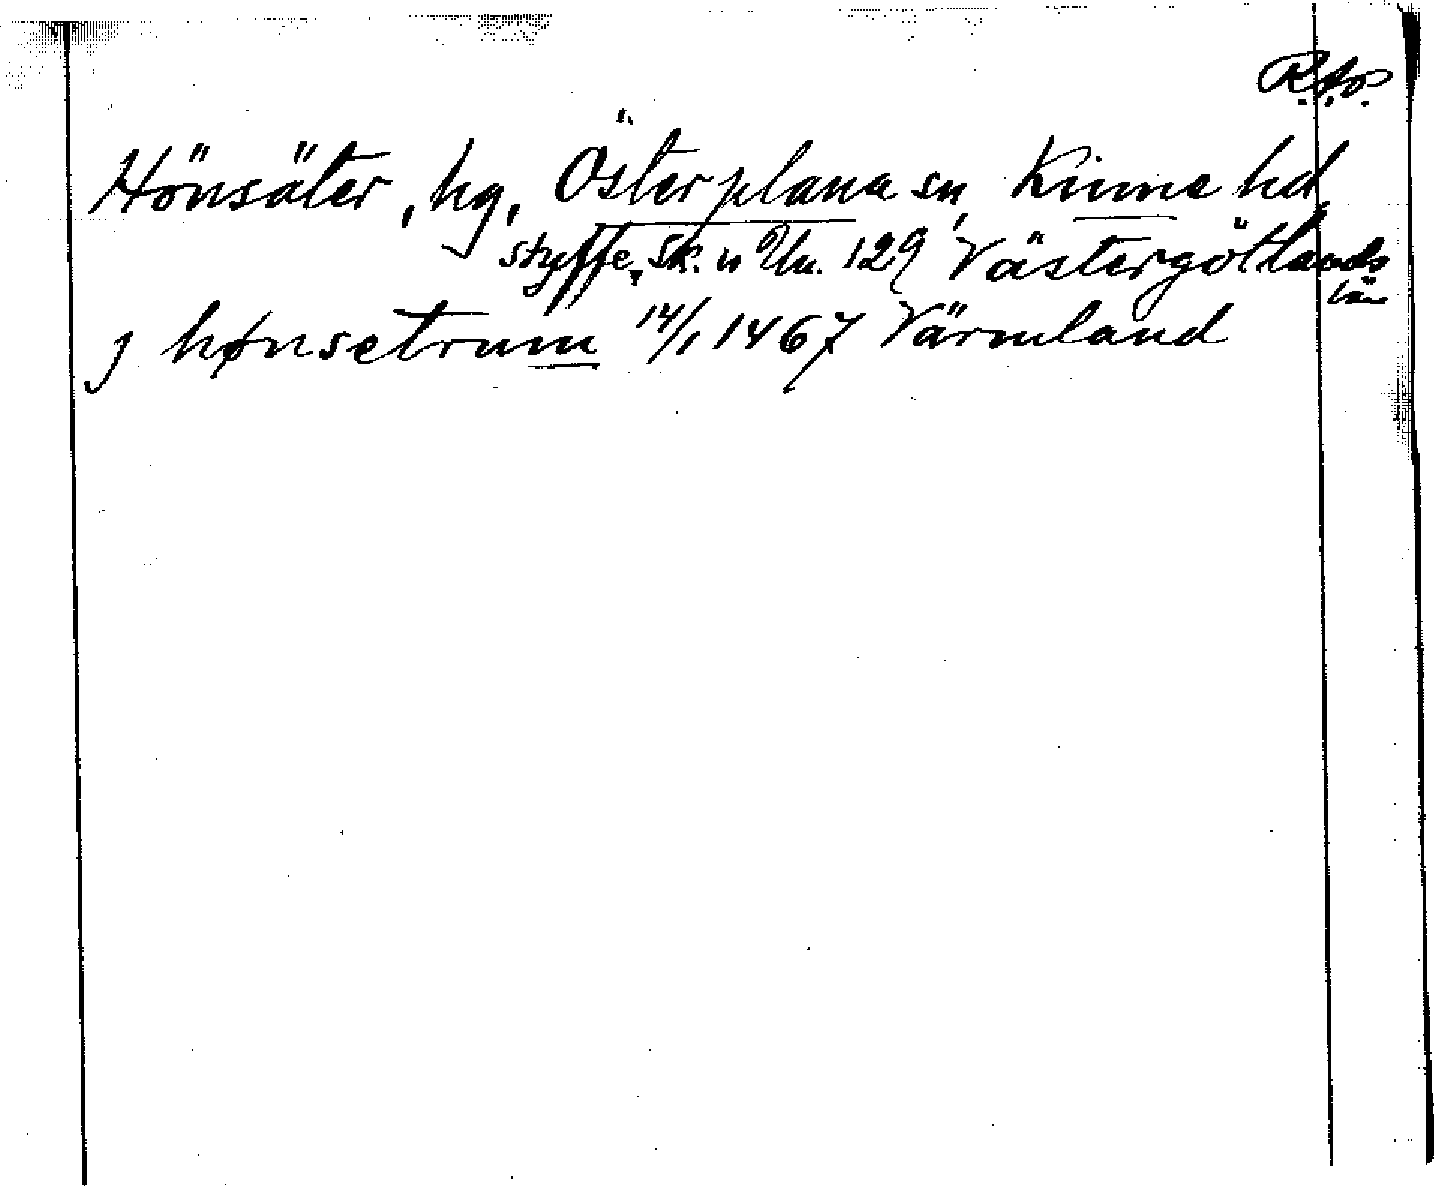 R.Ap.
Hönsäter, hg, Österplana sn, Kinne hd,
Styffe, Sk. u Un. 129 Västergötlands
län
j hønsetrum 14/1 1467 Värmland